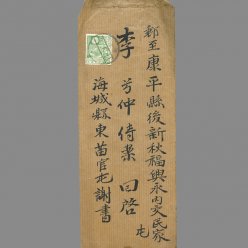 郵至康平縣後新秋福興永內交民家屯
李芳仲侍案 回啓
海城縣東苗官屯謝書